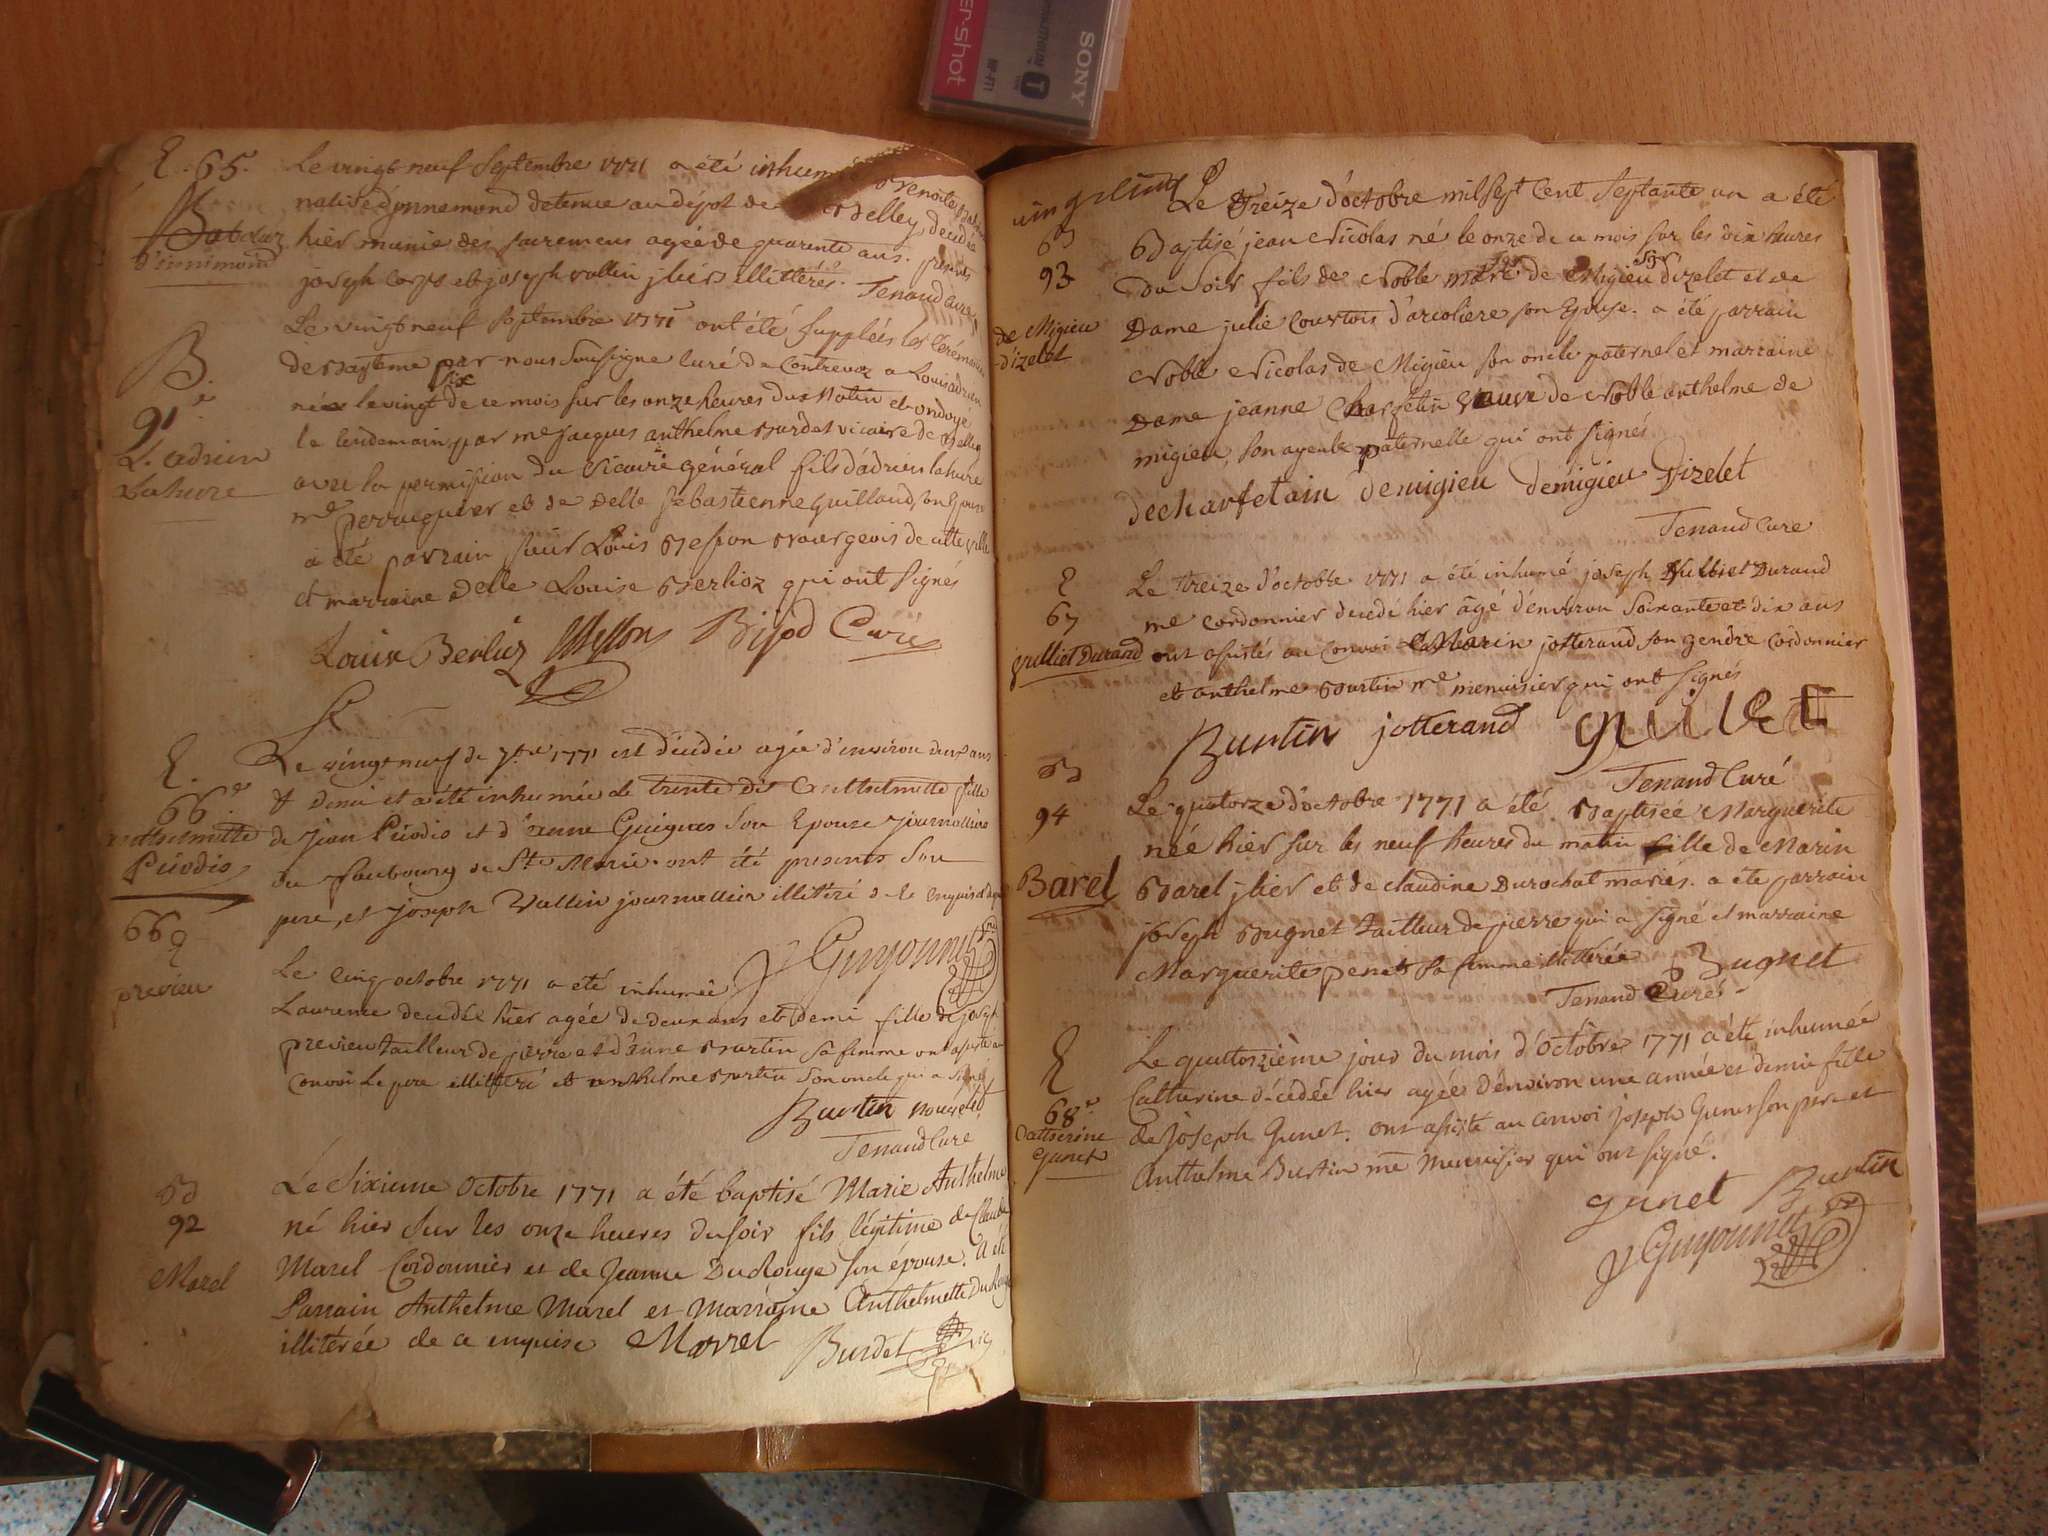 SONY
E. 65.
Le vingt neuf Septembre 1771 a été inhumé
native d'innemond detenue au dépot de
d'innimond
hier munie des sacremens agée de quarente ans. présents
joseph Corps et joseph vallin jliers illittérés. Tenand curé
B.
91e
L. adrien
Lahure
Le vingt neuf Septembre 1771 ont été Supplées les Cérémonies
de Bapteme par nous Soussigne Curé de Contrevoz a Louis adrien
né le vingt six de ce mois sur les onze heures du Matin et ondoyé
le lendemain par me jacques anthelme Burdet vicaire de Belley
avec la permission du Vicaire général fils d'adrien lahure
me perruquier et de Delle Sebastienne Guillaud, son Epouse
a été parrain sieur Louis Besson Bourgeois de cette ville
et marraine Delle Louise Berlioz qui ont signés
Louise Berlioz Besson Bijod Curé
E.
66e
anthelmette
Piiodio
Le vingt neuf de 7.bre 1771 est décédée agée d'environ deux ans
& demi et a été inhumée le trente dit Anthelmette fille
de Jean et d'anne Guigues Son Epouse journalliers
du faubourg de Ste Marie. ont été presents Son
pere, et joseph Vallin journallier illitéré de ce enquis
J Guyonnet
66 E
previeu
Le cinq octobre 1771 a été inhumée
Laurence decedée hier agée de deux ans et demi fille de joseph
previeu tailleur de pierre et d'anne Burtin sa femme ont assisté au
convoi Le pere illittéré et anthelme Burtin son oncle qui a signé
Burtin
Tenand Cure
B
92
Marel
Le Sixieme Octobre 1771 a été baptisé Marie Anthelme
né hier sur les onze heures du soir fils légitime de Claude
Marel Cordonnier et de Jeanne DuRouge son épouse. a été
Parrain Anthelme Marel et Marraine Anthelmette DuRouge
illitérée de ce enquise Marel Burdet vic
B
93
de Migieu
d'izelet
Le Treize d'octobre mil sept Cent Septante un a été
Baptisé jean Nicolas né le onze de ce mois sur les dix heures
Du Soir fils de Noble marc de Migieu sgr d'izelet et de
Dame julie Courtois d'arcoliere son Epouse. a été parrain
Noble Nicolas de Migieu son oncle paternel et marraine
Dame jeanne Charfetin veuve de Noble anthelme de
migieu, son ayeule paternelle qui ont signés
decharfetain demigieu demigieu Dizelet
Tenand Cure
E
67
julliet Durand
Le treize d'octobre 1771 a été inhumé joseph julliet Durand
me cordonnier decedé hier âgé d'environ Soixante et dix ans
ont assistés au convoi Marin jotterand son gendre Cordonnier
et anthelme Bourtin me menuisier qui ont signés
Burtin jotterand guilet
Tenand Curé
B
94
Barel
Le quatorze d'octobre 1771 a été Baptisée Marguerite
née hier sur les neuf heures du matin fille de Marin
Barel jlier et de claudine Durochat mariés. a été parrain
joseph Bugnet tailleur de pierre qui a signé et marraine
Marguerite penet sa femme illitérée Bugnet
Tenand Curé
E
68e
Catherine
Gunet
Le quattorzième jour du mois d'Octobre 1771 a été inhumée
Catherine décédée hier agée d'environ une année et demie fille
de Joseph Gunet. ont assisté au convoi joseph Gunet son pere et
Anthelme Burtin me Menuisier qui ont signé.
gunet Burtin
J Guyonnet